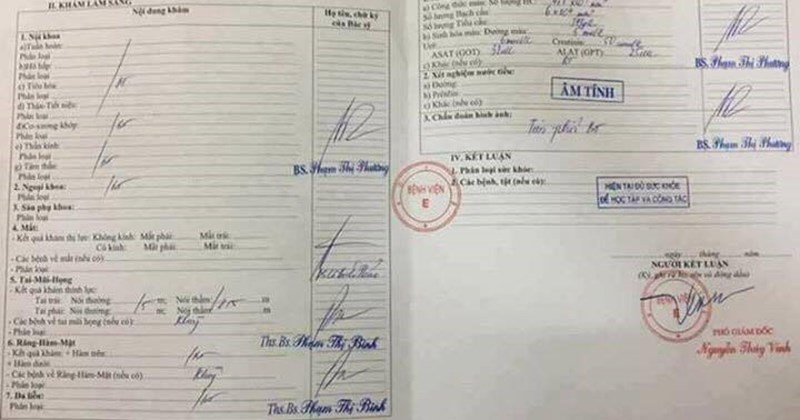 II. KHÁM LÂM SÀNG
Nội dung khám
Họ tên, chữ ký
của Bác sỹ
1. Nội khoa
a)Tuần hoàn:
Phân loại
b)Hô hấp:
Phân loại
c) Tiêu hóa:
Phân loại
d) Thận-Tiết niệu:
Phân loại
đ)Cơ-xương-khớp:
Phân loại
e) Thần kinh:
Phân loại
g) Tâm thần:
Phân loại
BS. Phạm Thị Phương
2. Ngoại khoa:
Phân loại:
3. Sản phụ khoa:
4. Mắt:
- Kết quả khám thị lực: Không kính: Mắt phải: Mắt trái:
Có kính: Mắt phải: Mắt trái:
- Các bệnh về mắt (nếu có):
- Phân loại:
5. Tai-Mũi-Họng
- Kết quả khám thính lực:
Tai trái: Nói thường: 5 m; Nói thầm: 0,5 m
Tai phải: Nói thường: m; Nói thầm: m
- Các bệnh về tai mũi họng (nếu có):
- Phân loại:
Ths.Bs. Phạm Thị Bình
6. Răng-Hàm-Mặt
- Kết quả khám: + Hàm trên:
+ Hàm dưới:
- Các bệnh về Răng-Hàm-Mặt (nếu có)
- Phân loại:
7. Da liễu:
Phân loại:
Ths.Bs. Phạm Thị Bình
a) Công thức máu: Số lượng HC:
Số lượng Bạch cầu:
Số lượng Tiểu cầu:
b) Sinh hóa máu: Đường máu:
Urê: Creatinin:
ASAT (GOT): ALAT (GPT):
c) Khác (nếu có):
BS. Phạm Thị Phương
2. Xét nghiệm nước tiểu:
a) Đường:
b) Prôtêin:
c) Khác (nếu có):
ÂM TÍNH
3. Chẩn đoán hình ảnh:
Tim phổi bt
BS. Phạm Thị Phương
IV. KẾT LUẬN
1. Phân loại sức khỏe:
2. Các bệnh, tật (nếu có):
BỆNH VIỆN
E
HIỆN TẠI ĐỦ SỨC KHỎE
ĐỂ HỌC TẬP VÀ CÔNG TÁC
ngày tháng năm
NGƯỜI KẾT LUẬN
(Ký, ghi rõ họ tên và đóng dấu)
BỆNH VIỆN
E
PHÓ GIÁM ĐỐC
Nguyễn Thúy Vinh